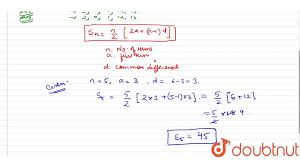 Sn = n/2 [2a + (n-1)d]
n. No. of terms
a. first term
d. common different
Given: n = 5, a = 3, d = 6-3 = 3.
S5 = 5/2 [2×3 + (5-1)×3] = 5/2 [6+12]
= 5/2 × 18 9
S5 = 45
doubtnut